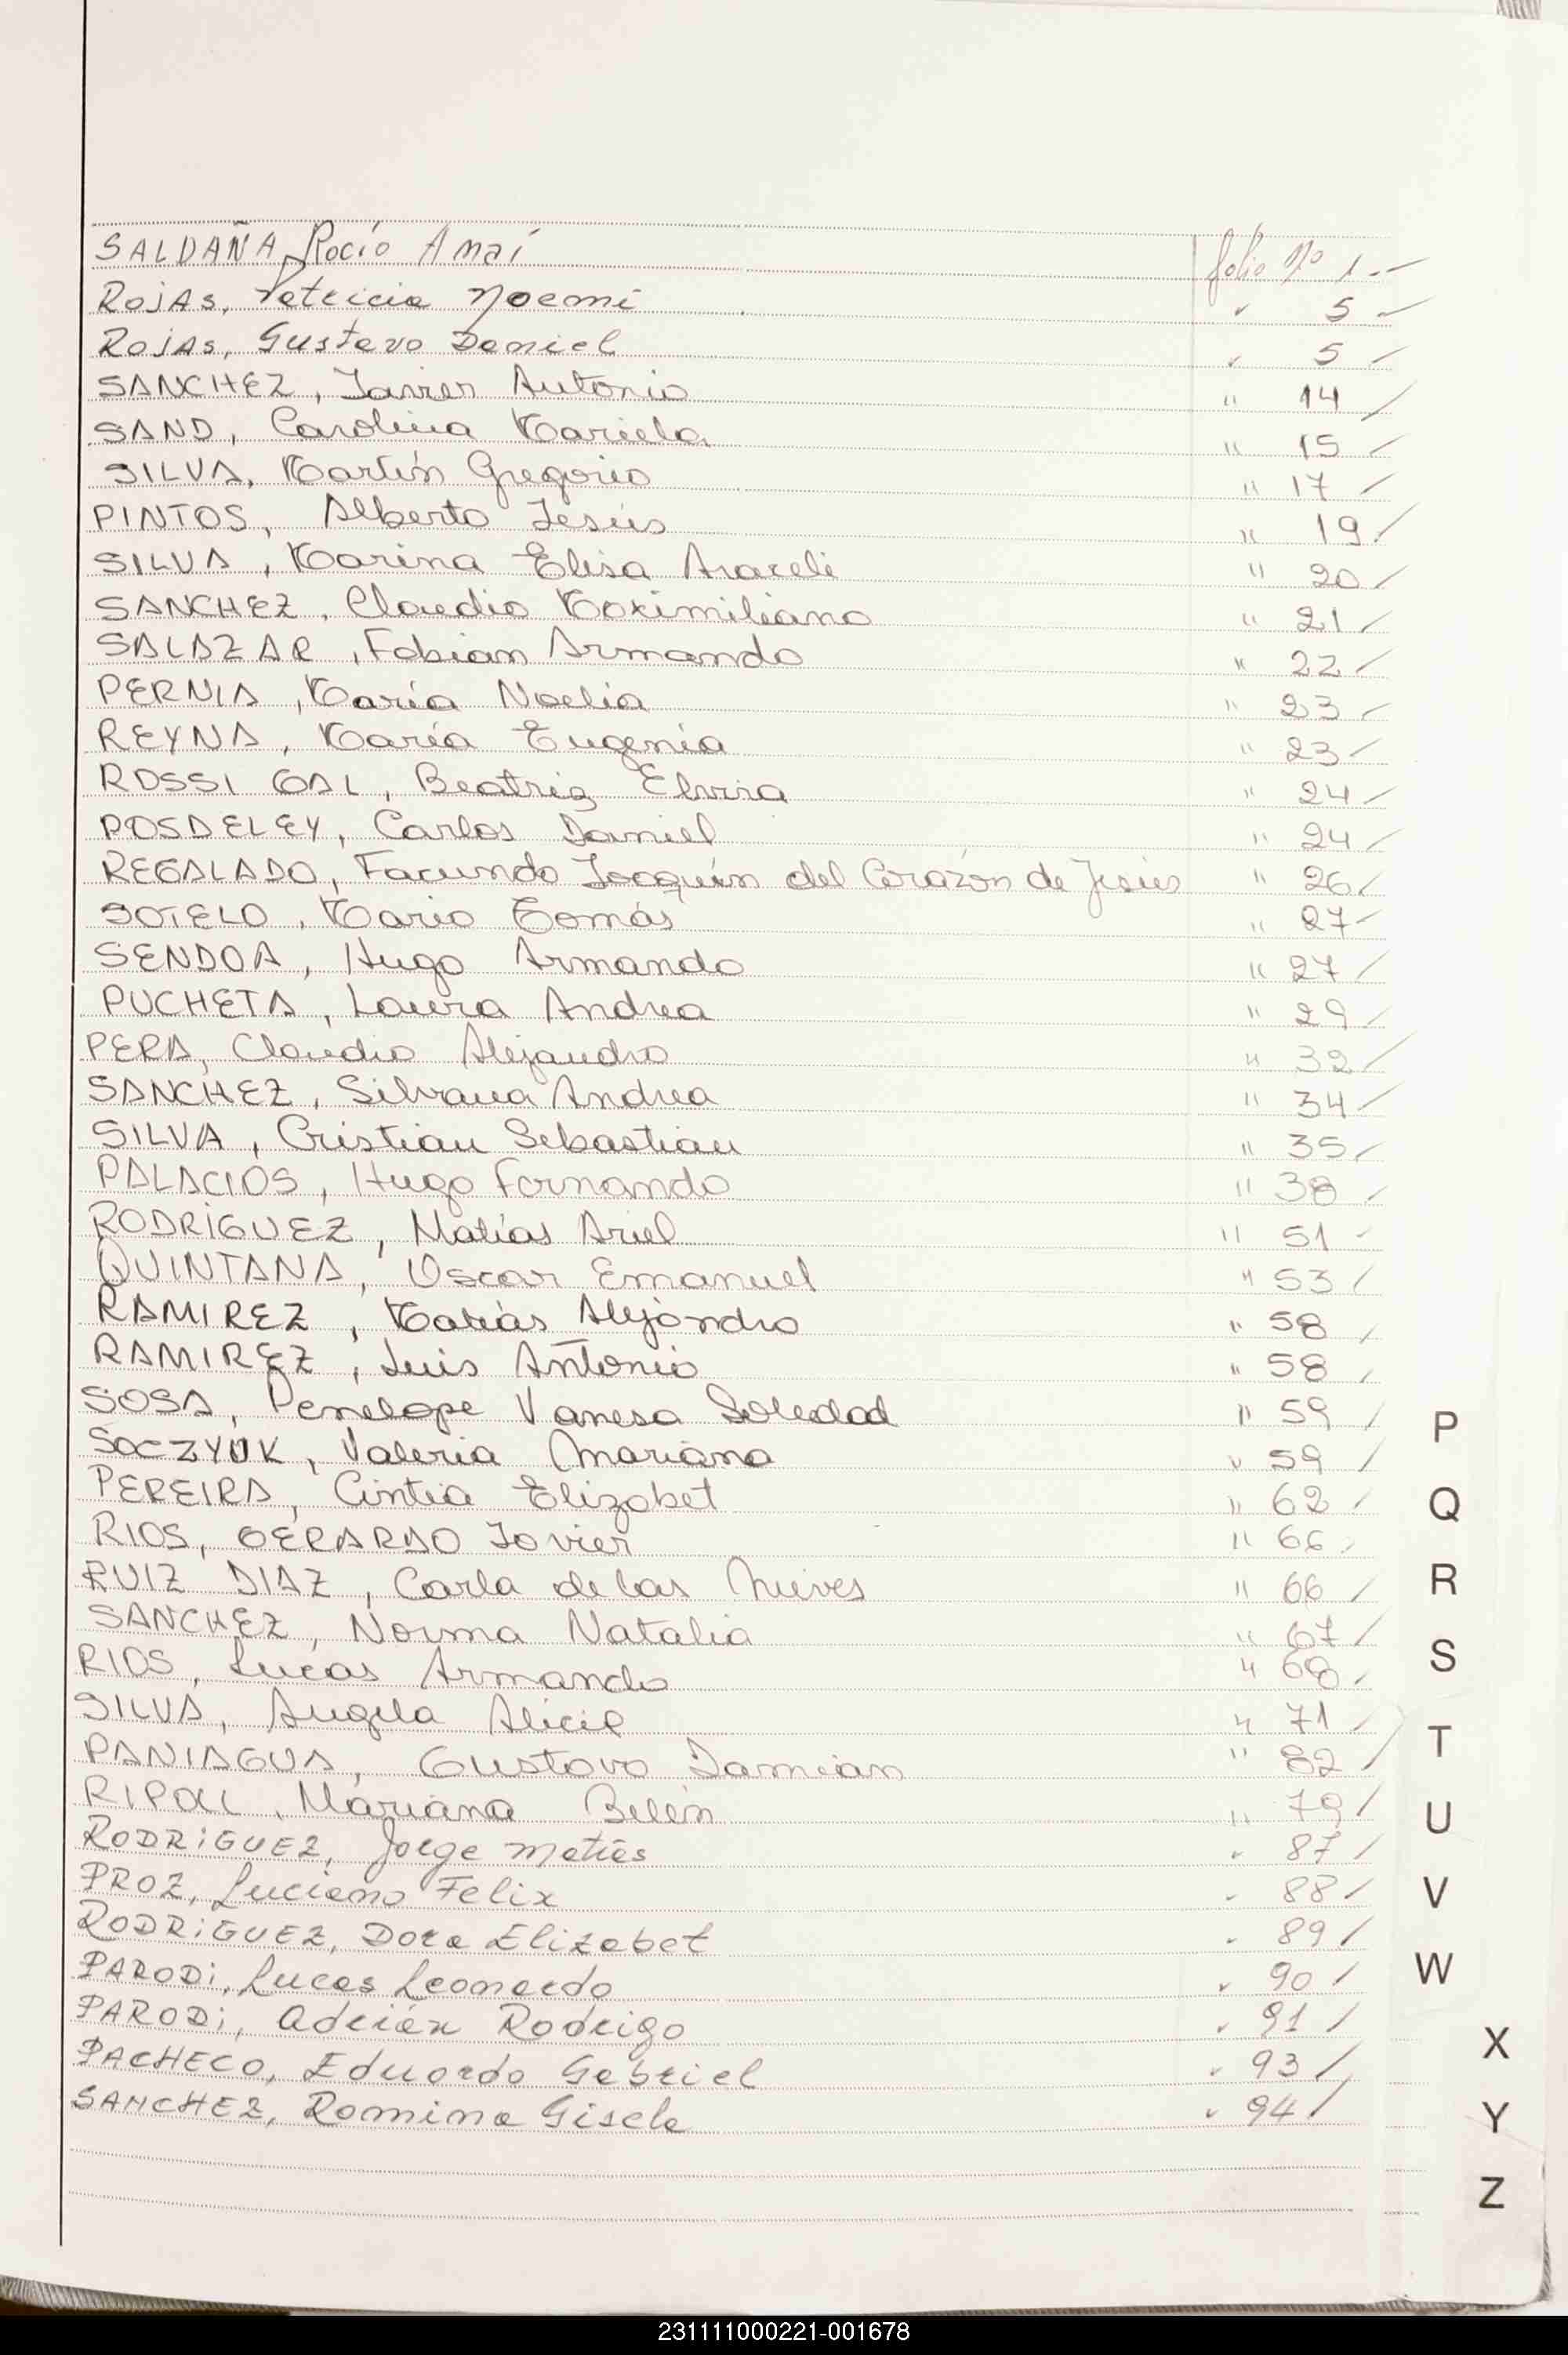 SALDAÑA, Rocío Amaí folio Nº 1.-
Rojas, Patricia Noemi " 5 -
Rojas, Gustavo Daniel " 5 /
SANCHEZ, Javier Antonio " 14 /
SAND, Carolina Mariela " 15 /
SILVA, Martín Gregorio " 17 /
PINTOS, Alberto Jesús " 19 /
SILVA, Marina Elisa Araceli " 20 /
SANCHEZ, Claudio Maximiliano " 21 /
SALAZAR, Fabian Armando " 22 /
PERNIA, María Noelia " 23 /
REYNA, María Eugenia " 23 /
ROSSI GAL, Beatriz Elvira " 24 /
POSDELEY, Carlos Daniel " 24 /
REGALADO, Facundo Joaquín del Corazón de Jesús " 26 /
SOTELO, Mario Tomás " 27 /
SENDOA, Hugo Armando " 27 /
PUCHETA, Laura Andrea " 29 /
PERA, Claudio Alejandro " 32 /
SANCHEZ, Silvana Andrea " 34 /
SILVA, Cristian Sebastian " 35 /
PALACIOS, Hugo Fernando " 38 /
RODRÍGUEZ, Matías Ariel " 51 -
QUINTANA, Oscar Emanuel " 53 /
RAMIREZ, Matías Alejandro " 58 /
RAMIREZ, Luis Antonio " 58 /
SOSA, Penelope Vanesa Soledad " 59 /
SOCZYUK, Valeria Mariana " 59 /
PEREIRA, Cintia Elizabet " 62 /
RIOS, GERARDO Javier " 66 /
RUIZ DIAZ, Carla de las Nieves " 66 /
SANCHEZ, Norma Natalia " 67 /
RIOS, Lucas Armando " 68 /
SILVA, Angela Alicia " 71 /
PANIAGUA, Gustavo Damian " 82 /
RIPOLL, Mariana Belén " 79 /
RODRiGUEZ, Jorge Matías " 87 /
PROZ, Luciano Felix " 88 /
RODRiGUEZ, Dora Elizabet " 89 /
PARODi, Lucas Leonardo " 90 /
PARODi, Adrián Rodrigo " 91 /
PACHECO, Eduardo Gabriel " 93 /
SANCHEZ, Romina Gisela " 94 /
P
Q
R
S
T
U
V
W
X
Y
Z
231111000221-001678